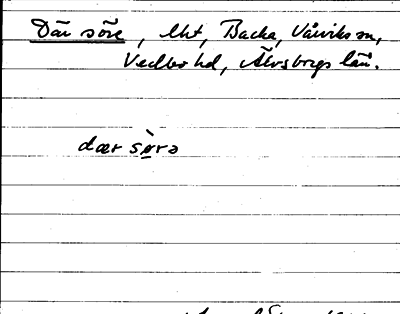 Där söre, lht, Backa, Vårviks sn,
Vedbo hd, Älvsborgs län.
dær sø̀rə